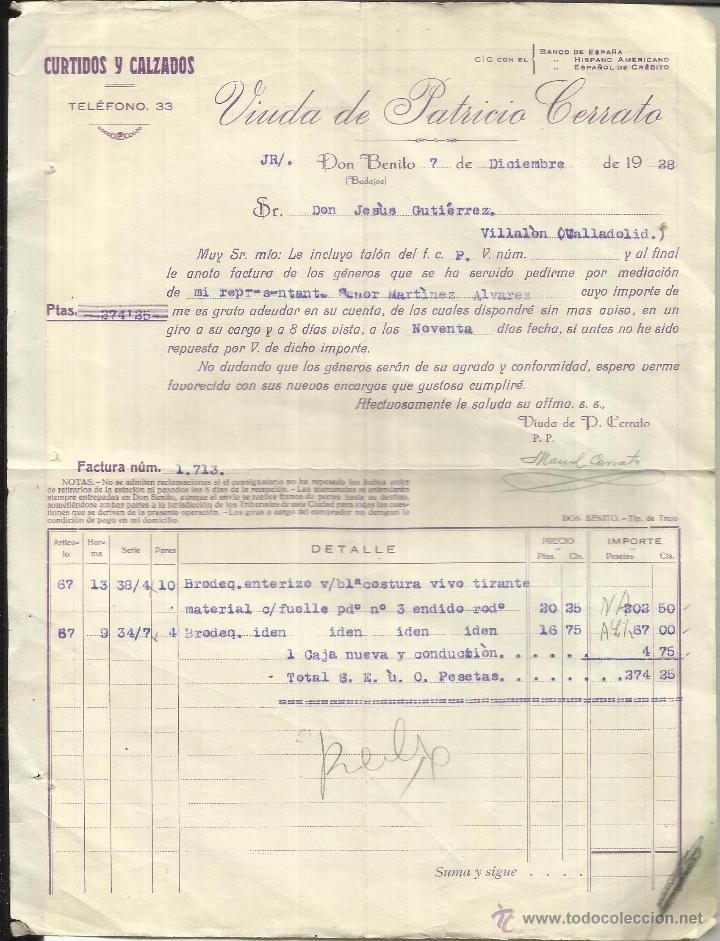 CURTIDOS Y CALZADOS
TELÉFONO. 33
C/C CON EL
BANCO DE ESPAÑA
„ HISPANO AMERICANO
„ ESPAÑOL DE CRÉDITO
Viuda de Patricio Cerrato
JR/. Don Benito 7 de Diciembre de 19 28
(Badajoz)
Sr. Don Jesùs Gutiérrez.
Villalòn (Valladolid.)
Muy Sr. mío: Le incluyo talón del f. c. P. V. núm. y al final
le anoto factura de los géneros que se ha servido pedirme por mediación
de mi representant. Señor Martìnez Alvarez cuyo importe de
Ptas. 274'25 me es grato adeudar en su cuenta, de las cuales dispondré sin mas aviso, en un
giro a su cargo y a 8 días vista, a los Noventa días fecha, si antes no he sido
repuesta por V. de dicho importe.
No dudando que los géneros serán de su agrado y conformidad, espero verme
favorecida con sus nuevos encargos que gustosa cumpliré.
Afectuosamente le saluda su affma. s. s.,
Viuda de P. Cerrato
P. P.
Manuel Cerrato
Factura núm. 1.713.
NOTAS.-No se admiten reclamaciones si el consignatario no ha repesado los bultos antes
de retirarlos de la estación ni pasados los 8 días de la recepción.-Las mercancías se entenderán
siempre entregadas en Don Benito, aunque el envío se realice franco de portes hasta su destino,
sometiéndose ambas partes a la jurisdicción de los Tribunales de esta Ciudad para todas las cues-
tiones que se deriven de la presente operación.-Los giros a cargo del comprador no derogan la
condición de pago en mi domicilio.
DON BENITO.-Tip. de Trejo
Artícu-lo Hor-ma Serie Pares DETALLE PRECIO Ptas. Cts. IMPORTE Pesetas Cts.
67 13 38/4 10 Brodeq.enterizo v/blªcostura vivo tirante
material c/fuelle pdº nº 3 endido rodº 20 25 202 50
67 9 34/7 4 Brodeq. iden iden iden iden 16 75 67 00
1 Caja nueva y conducciòn. . . . . . 4 75
- Total S. E. ù O. Pesetas. . . . . . . . 274 25
Suma y sigue
www.todocoleccion.net